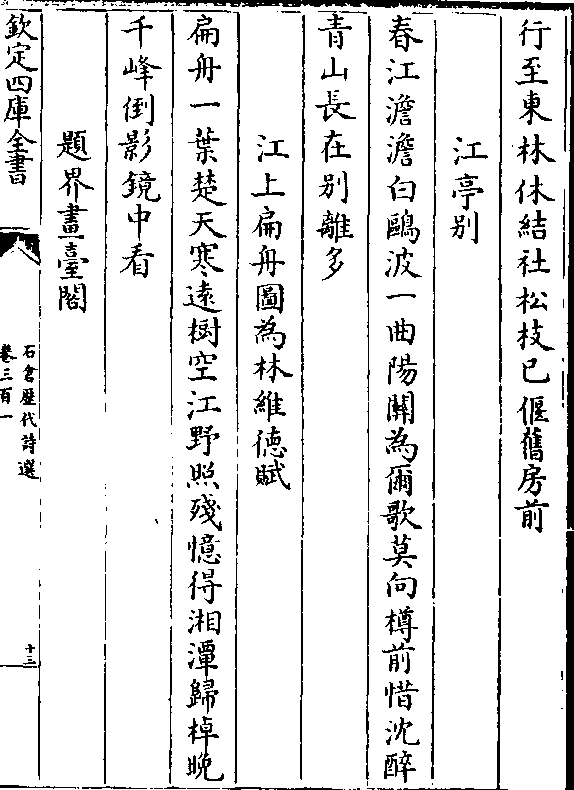 行至東林休結社松枝已偃舊房前
江亭别
春江澹澹白鷗波一曲陽關為爾歌莫向樽前惜沈醉
青山長在别離多
江上扁舟圖為林維徳賦
扁舟一葉楚天寒遠樹空江野照殘憶得湘潭歸棹晚
千峰倒影鏡中看
題界畫臺閣
欽定四庫全書
石倉歴代詩選
卷三百一
十三